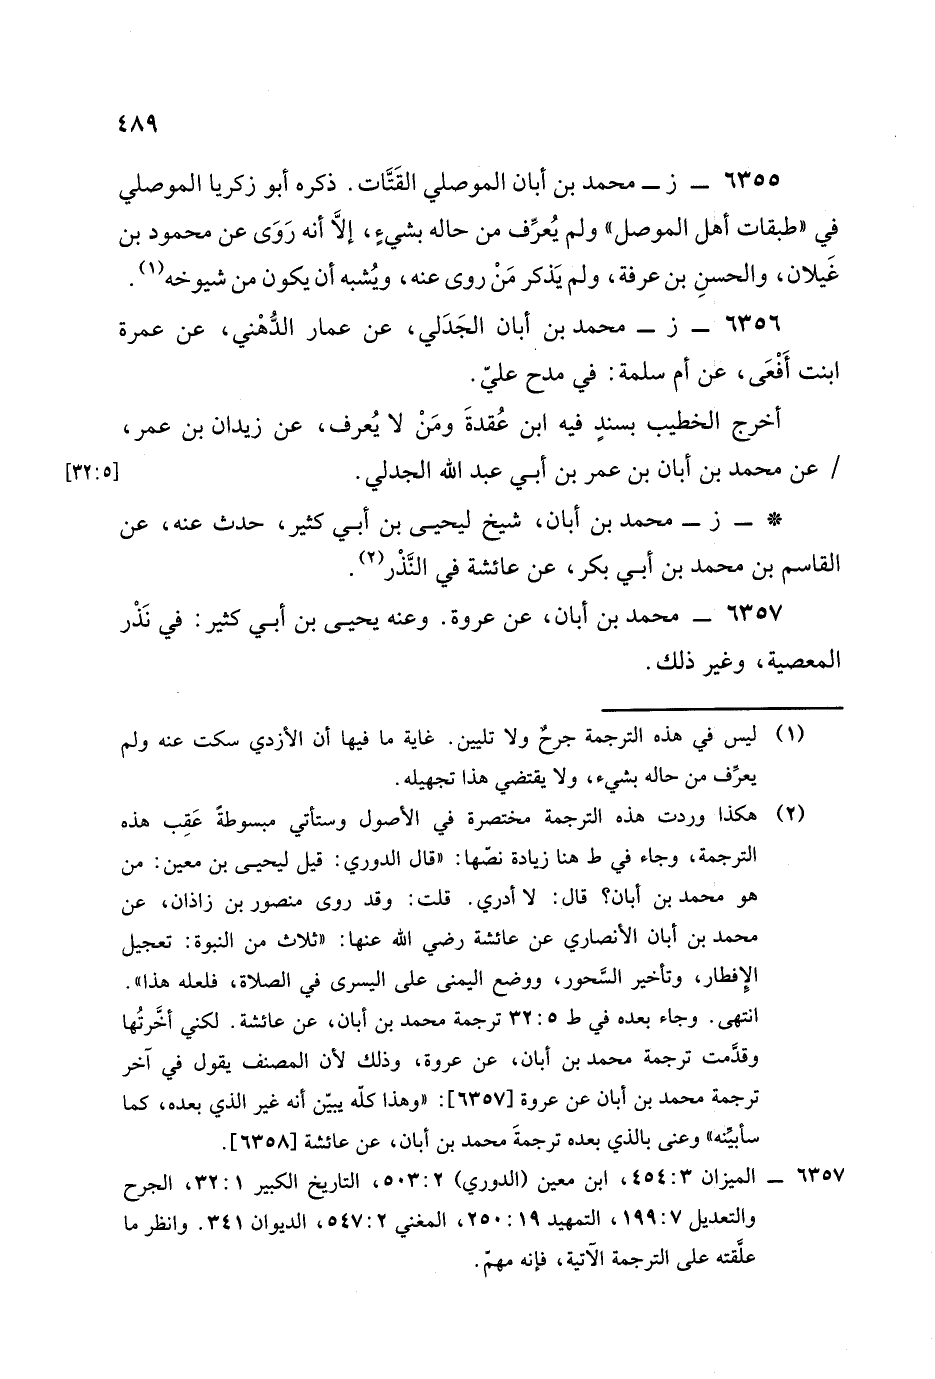 ٤٨٩
٦٣٥٥ ــ ز ــ محمد بن أبان الموصلي القَتَّات. ذكره أبو زكريا الموصلي
في «طبقات أهل الموصل» ولم يُعرِّف من حاله بشيءٍ، إلاَّ أنه رَوَى عن محمود بن
غَيلان، والحسنِ بن عرفة، ولم يَذكر مَنْ روى عنه، ويُشبه أن يكون من شيوخه(١).
٦٣٥٦ ــ ز ــ محمد بن أبان الجَدَلي، عن عمار الدُّهْني، عن عمرة
ابنت أَفْعَى، عن أم سلمة: في مدح عليّ.
أخرج الخطيب بسندٍ فيه ابن عُقدةَ ومَنْ لا يُعرف، عن زيدان بن عمر،
/ عن محمد بن أبان بن عمر بن أبـي عبد الله الجدلي. [٣٢:٥]
* ــ ز ــ محمد بن أبان، شيخ ليحيـى بن أبـي كثير، حدث عنه، عن
القاسم بن محمد بن أبـي بكر، عن عائشة في النَّذْر(٢).
٦٣٥٧ ــ محمد بن أبان، عن عروة. وعنه يحيـى بن أبـي كثير: في نَذْر
المعصية، وغير ذلك.
(١) ليس في هذه الترجمة جرحٌ ولا تليين. غاية ما فيها أن الأزدي سكت عنه ولم
يعرِّف من حاله بشيء، ولا يقتضي هذا تجهيله.
(٢) هكذا وردت هذه الترجمة مختصرة في الأصول وستأتي مبسوطةً عَقِب هذه
الترجمة، وجاء في ط هنا زيادة نصّها: «قال الدوري: قيل ليحيـى بن معين: من
هو محمد بن أبان؟ قال: لا أدري. قلت: وقد روى منصور بن زاذان، عن
محمد بن أبان الأنصاري عن عائشة رضي الله عنها: «ثلاث من النبوة: تعجيل
الإفطار، وتأخير السَّحور، ووضع اليمنى على اليسرى في الصلاة، فلعله هذا».
انتهى. وجاء بعده في ط ٣٢:٥ ترجمة محمد بن أبان، عن عائشة. لكني أخَّرتُها
وقدَّمت ترجمة محمد بن أبان، عن عروة، وذلك لأن المصنف يقول في آخر
ترجمة محمد بن أبان عن عروة [٦٣٥٧]: «وهذا كلّه يبيّن أنه غير الذي بعده، كما
سأبيِّنه» وعنى بالذي بعده ترجمةَ محمد بن أبان، عن عائشة [٦٣٥٨].
٦٣٥٧ ــ الميزان ٤٥٤:٣، ابن معين (الدوري) ٥٠٣:٢، التاريخ الكبير ٣٢:١، الجرح
والتعديل ١٩٩:٧، التمهيد ٢٥٠:١٩، المغني ٥٤٧:٢، الديوان ٣٤١. وانظر ما
علَّقته على الترجمة الآتية، فإنه مهمّ.